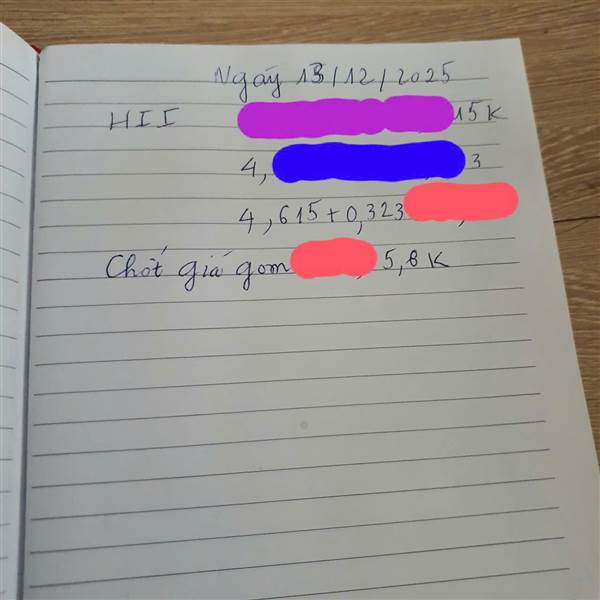 Ngày 13/12/2025
HII 15K
4, 3
4,615+0,323
Chốt giá gom 5,8K